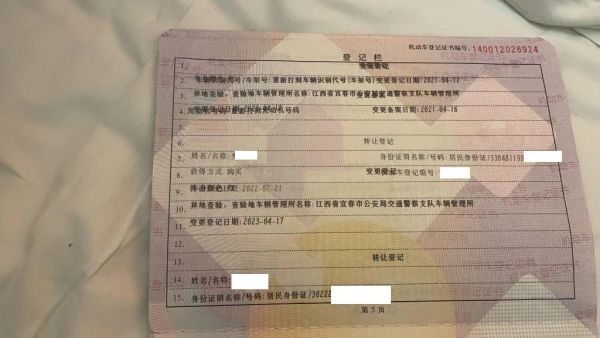 机动车登记证书编号: 140012028924
登记栏
1.
变更登记
2. 车辆识别代号/车架号: 重新打刻车辆识别代号(车架号) 变更登记日期: 2021-04-12
3. 异地查验, 查验地车辆管理所名称: 江西省宜春市公安局交通警察支队车辆管理所
变更备案
4. 发动机号码: 重新打刻发动机号码
变更备案日期: 2021-04-16
5.
6. 转让登记
7. 姓名/名称:
身份证明名称/号码: 居民身份证/330481199
8. 获得方式: 购买
变更登记
登记编号:
9. 车身颜色: 红 2022-07-21
10. 异地查验, 查验地车辆管理所名称: 江西省宜春市公安局交通警察支队车辆管理所
11. 变更登记日期: 2023-04-17
12.
13. 转让登记
14. 姓名/名称:
15. 身份证明名称/号码: 居民身份证/36222
第 5 页